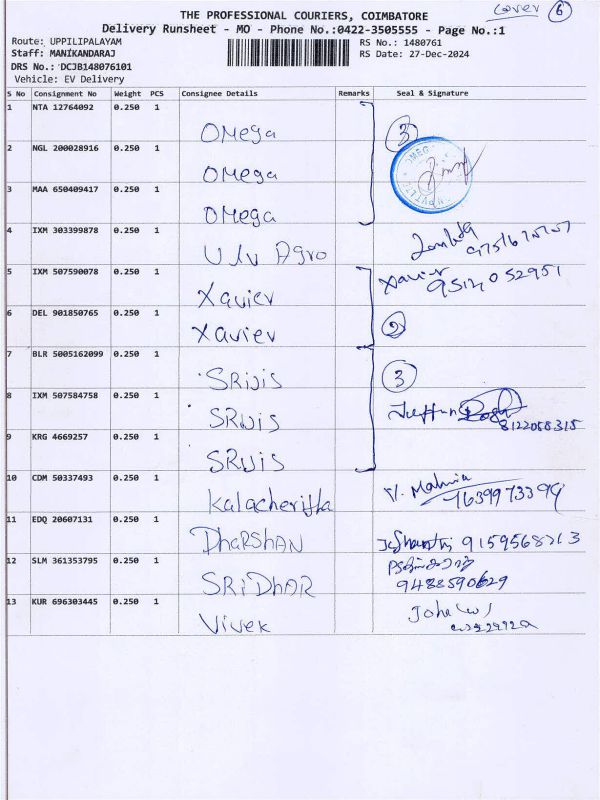 cover 6
THE PROFESSIONAL COURIERS, COIMBATORE
Delivery Runsheet - MO - Phone No.:0422-3505555 - Page No.:1
Route: UPPILIPALAYAM
RS No.: 1480761
Staff: MANIKANDARAJ
RS Date: 27-Dec-2024
DRS No.: DCJB148076101
Vehicle: EV Delivery
S No Consignment No Weight PCS Consignee Details Remarks Seal & Signature
1 NTA 12764092 0.250 1 Omega
3
2 NGL 200028916 0.250 1 Omega
OMEGA
3 MAA 650409417 0.250 1 Omega
4 IXM 303399878 0.250 1 Agro
5 IXM 507590078 0.250 1 Xavier
Xavier
6 DEL 901850765 0.250 1 Xavier
2
7 BLR 5005162099 0.250 1
3
8 IXM 507584758 0.250 1
8122058315
9 KRG 4669257 0.250 1
10 CDM 50337493 0.250 1
V.
11 EDQ 20607131 0.250 1 DHARSHAN
12 SLM 361353795 0.250 1 SRIDHAR
13 KUR 696303445 0.250 1 Vivek